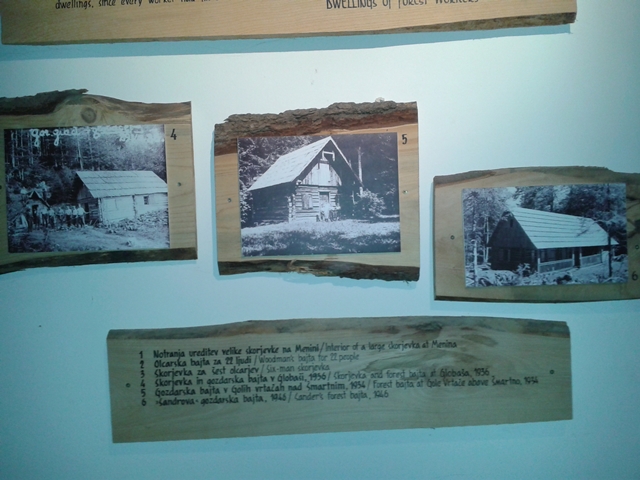 dwellings, since every worker had
DWELLINGS OF FOREST WORKERS
4
5
6
1 Notranja ureditev velike skorjevke na Menini / Interior of a large skorjevka at Menina
2 Olcarska bajta za 22 ljudi / Woodman's bajta for 22 people
3 Skorjevka za šest olcarjev / Six-man skorjevka
4 Skorjevka in gozdarska bajta v Globaši, 1936 / Skorjevka and forest bajta at Globaša, 1936
5 Gozdarska bajta v Golih vrtačah nad Šmartnim, 1934 / Forest bajta at Gole Vrtače above Šmartno, 1934
6 »Žandrova« gozdarska bajta, 1946 / Žander's forest bajta, 1946